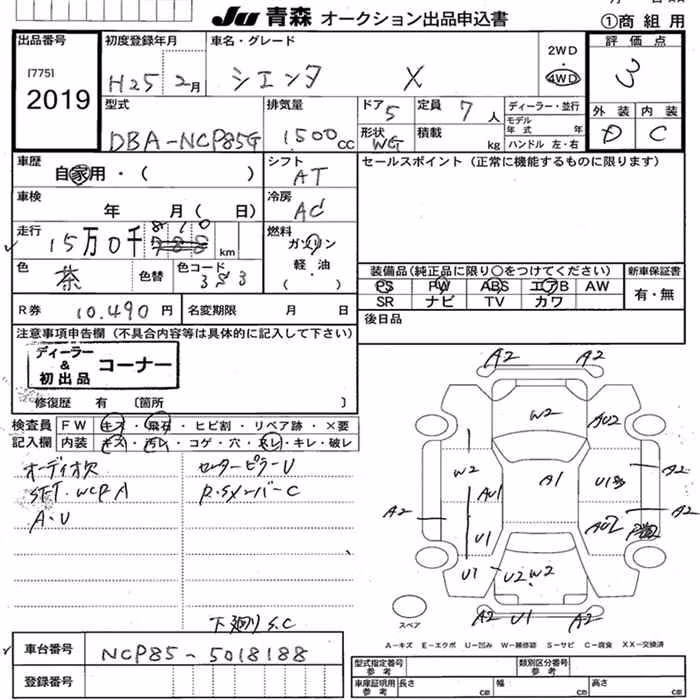 Ju 青森 オークション出品申込書
①商 組 用
出品番号
[775]
2019
初度登録年月
H25 2月
車名・グレード
シエンタ X
2WD
4WD
評 価 点
3
外 装 内 装
D C
型式
DBA-NCP85G
排気量
1500 CC
ドア 5
定員 7 人
形状 WG
積載 kg
ディーラー・並行
モデル 年 式 年
ハンドル 左・右
車歴
自家用・( )
シフト
AT
セールスポイント (正常に機能するものに限ります)
車検
年 月( 日)
冷房
AC
走行
15万0千810 km
燃料
ガソリン
軽・油
( )
色
茶
色替
色コード
装備品(純正品に限り○をつけてください)
新車保証書
PS PW ABS エアB AW
SR ナビ TV カワ
有・無
R券 10.490 円
名変期限 月 日
後日品
注意事項申告欄 (不具合内容等は具体的に記入して下さい)
ディーラー & 初出品 コーナー
修復歴 有 〔箇所 〕
検査員記入欄
FW キズ・飛石・ヒビ割・リペア跡・×要
内装 キズ・汚レ・コゲ・穴・スレ・キレ・破レ
オーディオ欠
センターピラーU
A・U
下廻りS.C
A2 A2
W2 AU2
W2 AU1 A1 A2
A2 U1 AU2 A2
U1 U2 W2
A2 U1 A2
スペア
A−キズ E−エクボ U−凹み W−補修跡 S−サビ C−腐食 XX−交換済
車台番号
NCP85-5018188
登録番号
型式指定番号 参考
類別区分番号 参考
車庫証明用 参考
長さ cm
幅 cm
高さ cm